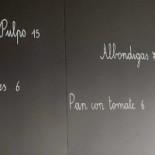 Pulpo 15
Albondigas
es 6
Pan con tomate 6